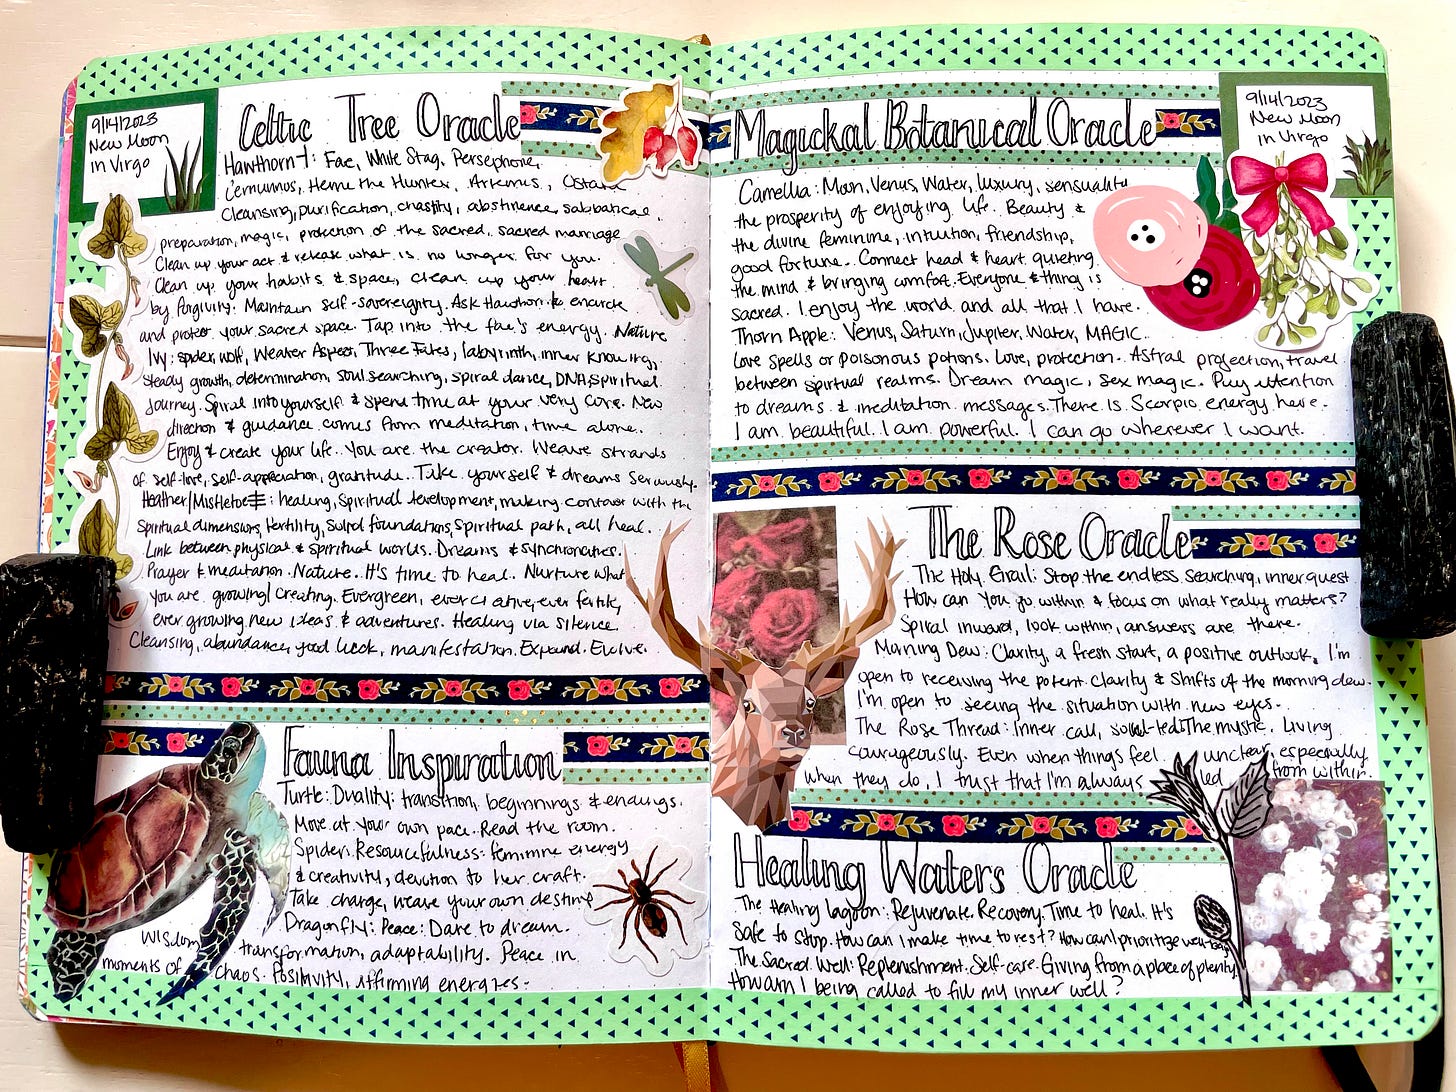 9/14/2023
New Moon
in Virgo
Celtic Tree Oracle
Hawthorn: Fae, White Stag, Persephone,
Cernunnos, Herne the Hunter, Artemis, Ostara
Cleansing, purification, chastity, abstinence, sabbatical,
preparation, magic, protection of the sacred, sacred marriage
Clean up your act & release what is no longer for you.
Clean up your habits & space, clean up your heart
by forgiving. Maintain self-sovereignty. Ask Hawthorn to encircle
and protect your sacred space. Tap into the fae's energy. Nature
Ivy: spider, wolf, Weaver Aspect, Three Fates, labyrinth, inner knowing,
steady growth, determination, soul searching, spiral dance, DNA, spiritual
journey. Spiral into yourself & spend time at your very core. New
direction & guidance comes from meditation, time alone.
Enjoy & create your life. You are the creator. Weave strands
of self-love, self-appreciation, gratitude. Take yourself & dreams seriously.
Heather/Mistletoe: healing, Spiritual development, making contact with the
spiritual dimensions, fertility, solid foundations, spiritual path, all heal.
Link between physical & spiritual worlds. Dreams & synchronicities.
Prayer & meditation. Nature. It's time to heal. Nurture what
you are growing/creating. Evergreen, ever creative, ever fertile,
ever growing new ideas & adventures. Healing via silence.
Cleansing, abundance, good luck, manifestation. Expand. Evolve.
Fauna Inspiration
Turtle: Duality: transition, beginnings & endings.
Move at your own pace. Read the room.
Spider: Resourcefulness: feminine energy
& creativity, devotion to her craft.
Take charge, weave your own destiny
Dragonfly: Peace: Dare to dream.
Wisdom, transformation, adaptability. Peace in
moments of chaos. Positivity, affirming energies.
9/14/2023
New Moon
in Virgo
Magickal Botanical Oracle
Camellia: Moon, Venus, Water, luxury, sensuality
the prosperity of enjoying life. Beauty &
the divine feminine, intuition, friendship,
good fortune. Connect head & heart, quieting
the mind & bringing comfort. Everyone & thing is
sacred. I enjoy the world and all that I have.
Thorn Apple: Venus, Saturn, Jupiter, Water, MAGIC
love spells or poisonous potions. Love, protection. Astral projection, travel
between spiritual realms. Dream magic, sex magic. Pay attention
to dreams & meditation messages. There is Scorpio energy here.
I am beautiful. I am powerful. I can go wherever I want.
The Rose Oracle
The Holy Grail: Stop the endless searching, inner quest
How can you go within & focus on what really matters?
Spiral inward, look within, answers are there.
Morning Dew: Clarity, a fresh start, a positive outlook. I'm
open to receiving the potent clarity & shifts of the morning dew.
I'm open to seeing the situation with new eyes.
The Rose Thread: Inner call, soul-led, The mystic. Living
courageously. Even when things feel unclear, especially
when they do, I trust that I'm always led from within.
Healing Waters Oracle
The Healing Lagoon: Rejuvenate. Recovery. Time to heal. It's
safe to stop. How can I make time to rest? How can I prioritize well-being
The Sacred Well: Replenishment. Self-care. Giving from a place of plenty.
How am I being called to fill my inner well?